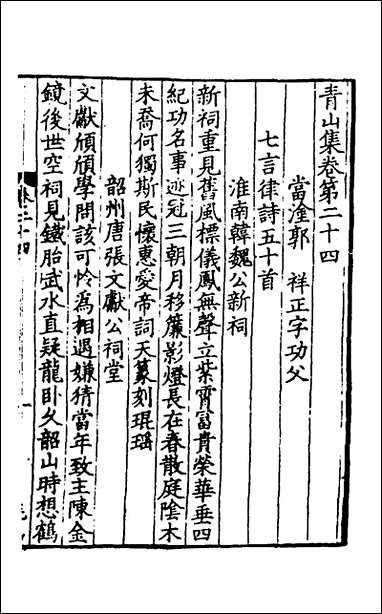 青山集卷第二十四
當塗郭　祥正字功父
七言律詩五十首
淮南韓魏公新祠
新祠重見舊風標儀鳳無聲立紫霄富貴榮華垂四
紀功名事迹冠三朝月移簾影燈長在春散庭陰木
未喬何獨斯民懷惠愛帝詞天篆刻琨瑤
韶州唐張文獻公祠堂
文獻頎頎學問該可憐爲相遇嫌猜當年致主陳金
鏡後世空祠見鐵胎武水直疑龍卧久韶山時想鶴